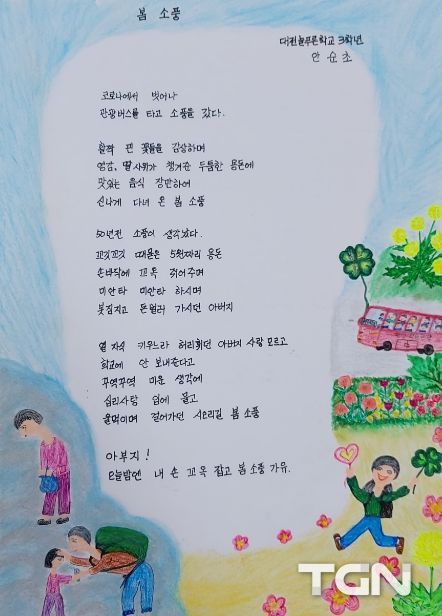 봄 소풍
대전늘푸른학교 3학년
안 순 초
코로나에서 벗어나
관광버스를 타고 소풍을 갔다.
활짝 핀 꽃들을 감상하며
영감, 딸 사위가 챙겨준 두툼한 용돈에
맛있는 음식 장만하여
신나게 다녀 온 봄 소풍
50년전 소풍이 생각났다.
꼬깃꼬깃 때묻은 5원짜리 용돈
손바닥에 꼬옥 쥐어주며
미안타 미안타 하시며
봇짐지고 돈벌러 가시던 아버지
열 자식 키우느라 허리휘던 아버지 사랑 모르고
학교에 안 보내준다고
꾸역꾸역 미운 생각에
십리사탕 입에 물고
울먹이며 걸어가던 시오리길 봄 소풍
아부지!
오늘밤엔 내 손 꼬옥 잡고 봄 소풍 가유.
TGN